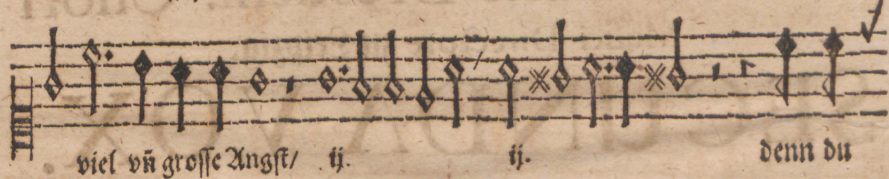 viel vñ groſſe Angſt/ ij. ij. denn du